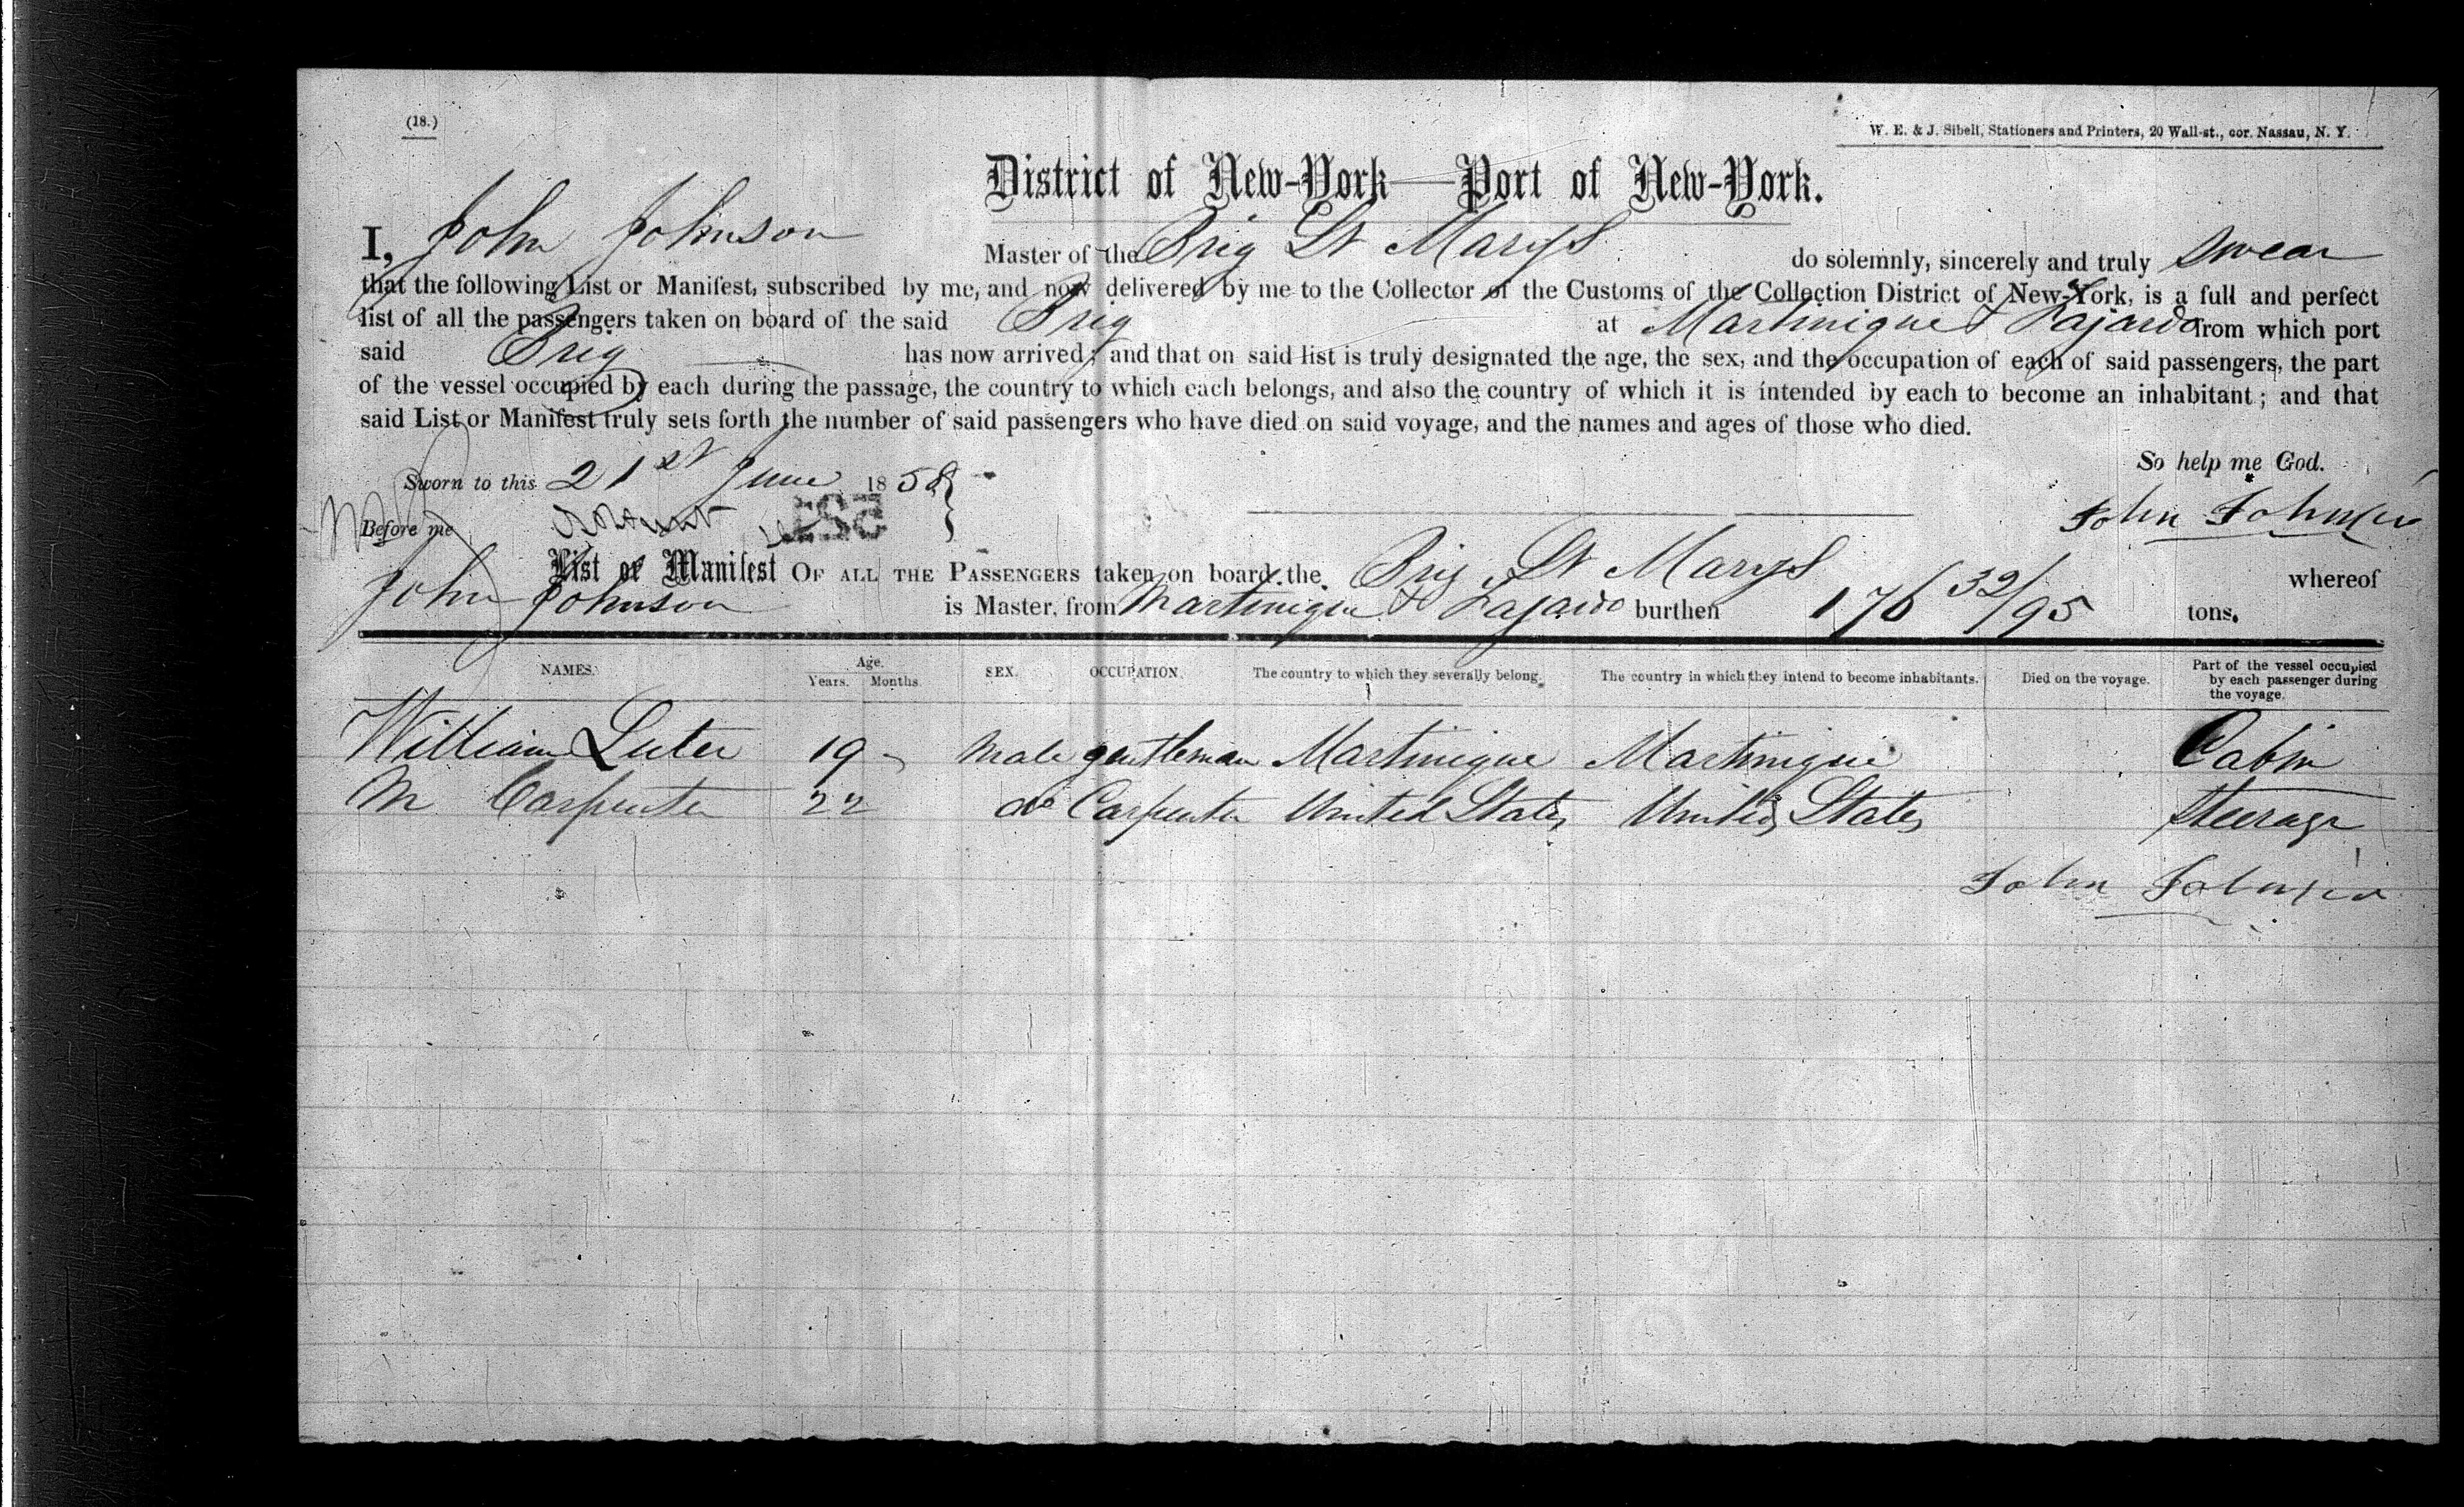 (18.)
W. E. & J. Sibell, Stationers and Printers, 20 Wall-st., cor. Nassau, N. Y.
District of New-York—Port of New-York.
I, John Johnson Master of the Brig St Marys do solemnly, sincerely and truly swear
that the following List or Manifest, subscribed by me, and now delivered by me to the Collector of the Customs of the Collection District of New-York, is a full and perfect
list of all the passengers taken on board of the said Brig at Martinique & Fajardo from which port
said Brig has now arrived; and that on said list is truly designated the age, the sex, and the occupation of each of said passengers, the part
of the vessel occupied by each during the passage, the country to which each belongs, and also the country of which it is intended by each to become an inhabitant; and that
said List or Manifest truly sets forth the number of said passengers who have died on said voyage, and the names and ages of those who died.
So help me God.
Sworn to this 21st June 1858
John Johnson
Before me
522
List or Manifest OF ALL THE PASSENGERS taken on board the Brig St Marys whereof
John Johnson is Master, from Martinique & Fajardo burthen 176 32/95 tons.
NAMES. Age. Years. Months. SEX. OCCUPATION. The country to which they severally belong. The country in which they intend to become inhabitants. Died on the voyage. Part of the vessel occupied by each passenger during the voyage.
William Luter 19 Male gentleman Martinique Martinique Cabin
M Carpenter 22 do Carpenter United States United States Steerage
John Johnson